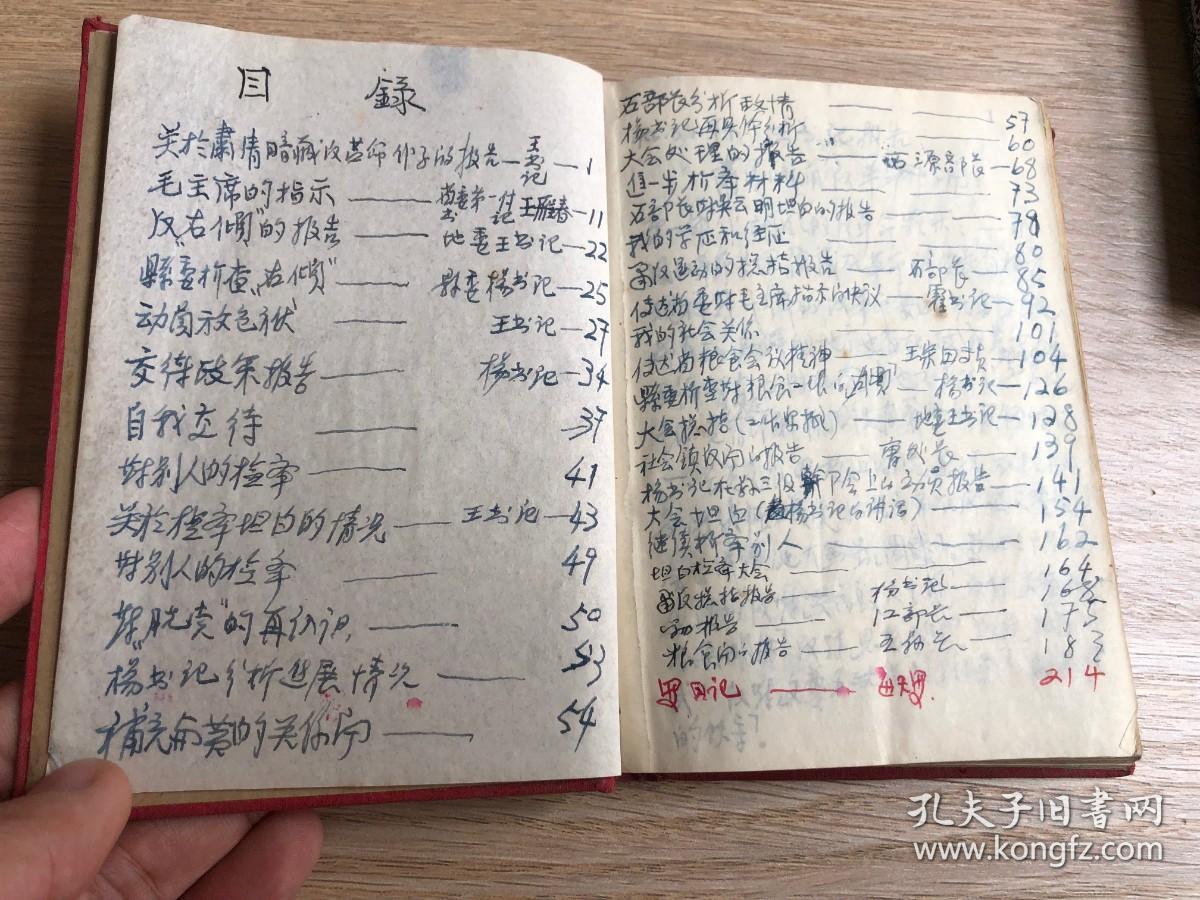 目 錄
关於肃清暗藏反革命份子的报告—王书记—1
毛主席的指示 —— 省委第一付书记王雁春—11
反"右倾"的报告 —— 地委王书记—22
縣委析查"右倾" 縣委楊书记—25
动员放包袱 —— 王书记—27
交待政策报告 —— 楊书记—34
自我交待 —— 37
对别人的检举 —— 41
关於检举坦白的情况 —— 王书记—43
对别人的检举 —— 49
"脱壳"的再认识 —— 50
楊书记分析进展情况 —— 53
补充 的关係问 —— 54
石部长分析敌情 —— 57
楊书记再具体分析 —— 60
大会处理的报告 —— 68
进一步析举材料 —— 73
石部长对吴云明坦白的报告 —— 78
我的学历和经历 —— 80
肃反运动的总结报告 —— 石部长 —— 85
传达省委对毛主席指示的决议 —— 霍书记—92
我的社会关係 —— 101
传达省粮食会议精神 —— 104
縣委析查对粮食工作 —— 楊书记—126
大会总结(工作安排) —— 地委王书记—128
社会鎮反问的报告 —— 局长 —— 139
楊书记在县三级幹部会上的动员报告 —— 141
大会坦白(楊书记的讲话) —— 154
继续析举别人 —— 162
坦白检举大会 —— 164
肃反总结报告 —— 楊书记 —— 168
报告 —— 江部长 —— 175
粮食问的报告 —— 王 长 —— 183
日记 —— 214
孔夫子旧书网
www.kongfz.com